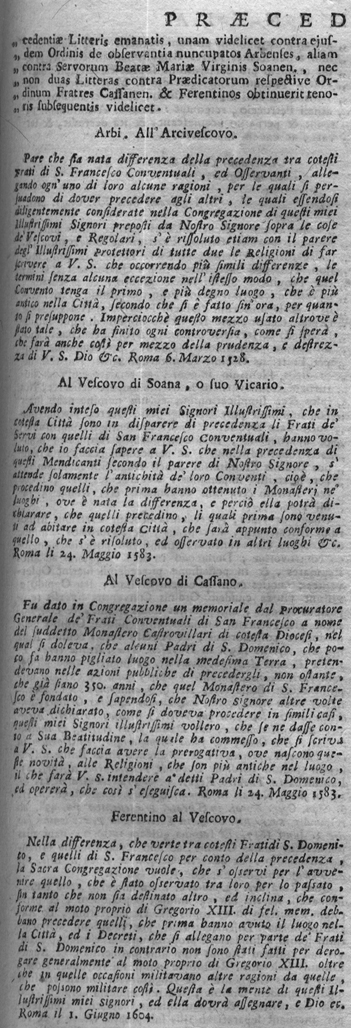 PRÆCED
„ cedentiæ Litteris emanatis, unam videlicet contra ejus-
„ dem Ordinis de observantia nuncupatos Arbenses, aliam
„ contra Servorum Beatæ Mariæ Virginis Soanen., nec
„ non duas Litteras contra Prædicatorum respective Or-
„ dinum Fratres Cassanen. & Ferentinos obtinuerit teno-
„ ris subsequentis videlicet.
Arbi. All'Arcivescovo.
Pare che sia nata differenza della precedenza tra cotesti
Frati di S. Francesco Conventuali, ed Osservanti, alle-
gando ogn'uno di loro alcune ragioni, per le quali si per-
suadono di dover precedere agli altri, le quali essendosi
diligentemente considerate nella Congregazione di questi miei
Illustrissimi Signori preposti da Nostro Signore sopra le cose
de'Vescovi, e Regolari, s'è rissoluto etiam con il parere
degl'Illustrissimi protettori di tutte due le Religioni di far
scrivere a V. S. che occorrendo più simili differenze, le
termini senza alcuna eccezione nell'istesso modo, che quel
Convento tenga il primo, e più degno luogo, che è più
antico nella Città, secondo che si è fatto sin'ora, per quan-
to si presuppone. Imperciocchè questo mezzo usato altrove è
stato tale, che ha finito ogni controversia, come si spera,
che farà anche costì per mezzo della prudenza, e destrez-
za di V. S. Dio &c. Roma 6. Marzo 1528.
Al Vescovo di Soana, o suo Vicario.
Avendo inteso questi miei Signori Illustrissimi, che in
cotesta Città sono in disparere di precedenza li Frati de'
Servi con quelli di San Francesco Conventuali, hanno vo-
luto, che io faccia sapere a V. S. che nella precedenza di
questi Mendicanti secondo il parere di Nostro Signore, s'
attende solamente l'antichità de' loro Conventi, cioè, che
procedino quelli, che prima hanno ottenuto i Monasteri ne'
luoghi, ove è nata la differenza, e perciò ella potrà di-
chiarare, che quelli precedino, li quali prima sono venu-
ti ad abitare in cotesta Città, che sarà appunto conforme a
quello, che s'è risoluto, ed osservato in altri luoghi &c.
Roma li 24. Maggio 1583.
Al Vescovo di Cassano.
Fu dato in Congregazione un memoriale dal procuratore
Generale de' Frati Conventuali di San Francesco a nome
del suddetto Monastero Castrovillari di cotesta Diocesi, nel
qual si doleva, che alcuni Padri di S. Domenico, che po-
co fa hanno pigliato luogo nella medesima Terra, preten-
devano nelle azioni pubbliche di precedergli, non ostante,
che già siano 350. anni, che quel Monastero di S. France-
sco è fondato, e sapendosi, che Nostro signore altre volte
aveva dichiarato, come si doveva procedere in simili casi,
questi miei Signori illustrissimi vollero, che se ne dasse con-
to a Sua Beatitudine, la quale ha commesso, che si scriva
a V. S. che faccia avere la prerogativa, ove nascono que-
ste novità, alle Religioni, che son più antiche nel luogo,
il che farà V. S. intendere a' detti Padri di S. Domenico,
ed opererà, che così s'eseguisca. Roma li 24. Maggio 1583.
Ferentino al Vescovo.
Nella differenza, che verte tra cotesti Frati di S. Domeni-
to, e quelli di S. Francesco per conto della precedenza,
la Sacra Congregazione vuole, che s'osservi per l'avve-
nire quello, che è stato osservato tra loro per lo passato,
fin tanto che non sia destinato altro, ed inclina, che con-
forme al moto proprio di Gregorio XIII. di fel. mem. deb-
bano precedere quelli, che prima hanno avuto il luogo nel-
la Città, ed i Decreti, che si allegano per parte de' Frati
di S. Domenico in contrario non sono stati fatti per dero-
gare generalmente al moto proprio di Gregorio XIII. oltre
che in quelle occasioni militavano altre ragioni da quelle,
che possono militare costì. Questa è la mente di questi Il-
lustrissimi miei signori, ed ella dovrà assegnare, e Dio ec.
Roma il 1. Giugno 1604.